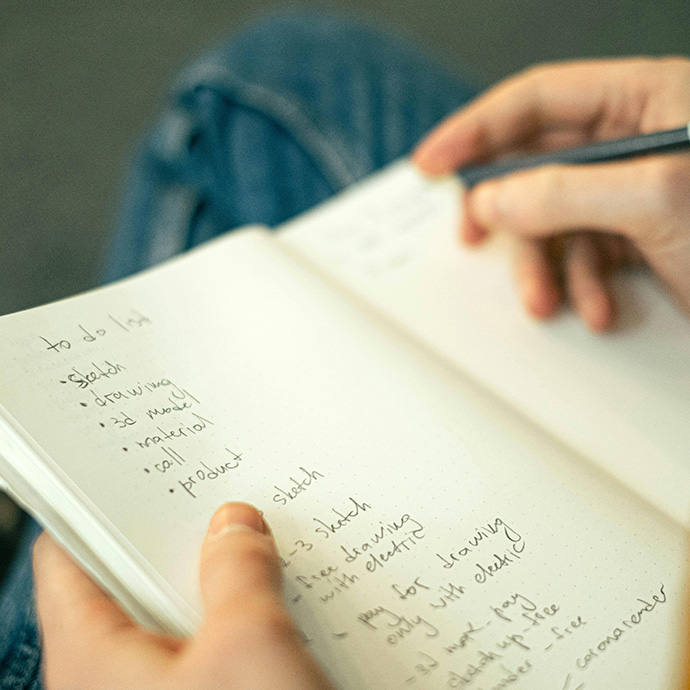 to do list
• sketch
• drawing
• 3d model
• material
• call
• product
sketch
2-3 sketch
- free drawing
with electric
- pay for drawing
only with electric
- 3d max - pay
sketch up - free
- free
- corona render